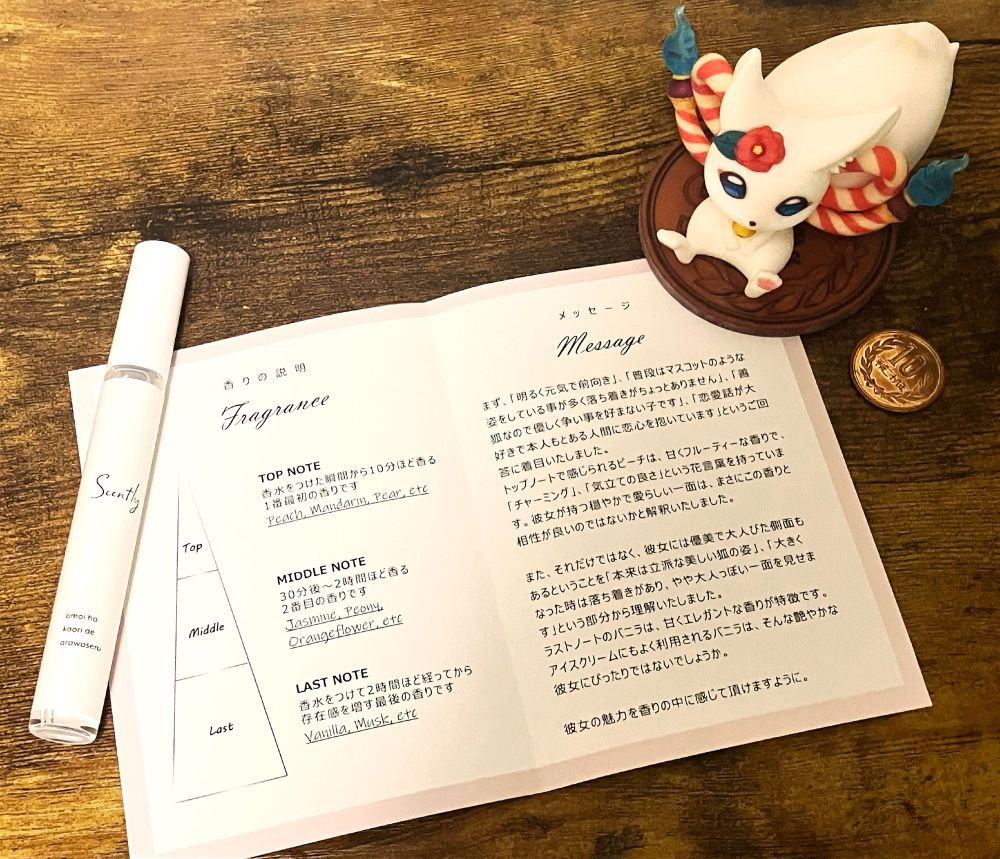 Scently
omoi ha
kaori de
arawaseru
香りの説明
Fragrance
Top
Middle
Last
TOP NOTE
香水をつけた瞬間から10分ほど香る
1番最初の香りです
Peach, Mandarin, Pear, etc
MIDDLE NOTE
30分後～2時間ほど香る
2番目の香りです
Jasmine, Peony,
Orangeflower, etc
LAST NOTE
香水をつけて2時間ほど経ってから
存在感を増す最後の香りです
Vanilla, Musk, etc
メッセージ
Message
まず、「明るく元気で前向き」、「普段はマスコットのような
姿をしている事が多く落ち着きがちょっとありません」、「善
狐なので優しく争い事を好まない子です」、「恋愛話が大
好きで本人もとある人間に恋心を抱いています」というご回
答に着目いたしました。
トップノートで感じられるピーチは、甘くフルーティーな香りで、
「チャーミング」、「気立ての良さ」という花言葉を持っていま
す。彼女が持つ穏やかで愛らしい一面は、まさにこの香りと
相性が良いのではないかと解釈いたしました。
また、それだけではなく、彼女には優美で大人びた側面も
あるということを「本来は立派な美しい狐の姿」、「大きく
なった時は落ち着きがあり、やや大人っぽい一面を見せま
す」という部分から理解いたしました。
ラストノートのバニラは、甘くエレガントな香りが特徴です。
アイスクリームにもよく利用されるバニラは、そんな艶やかな
彼女にぴったりではないでしょうか。
彼女の魅力を香りの中に感じて頂けますように。
10